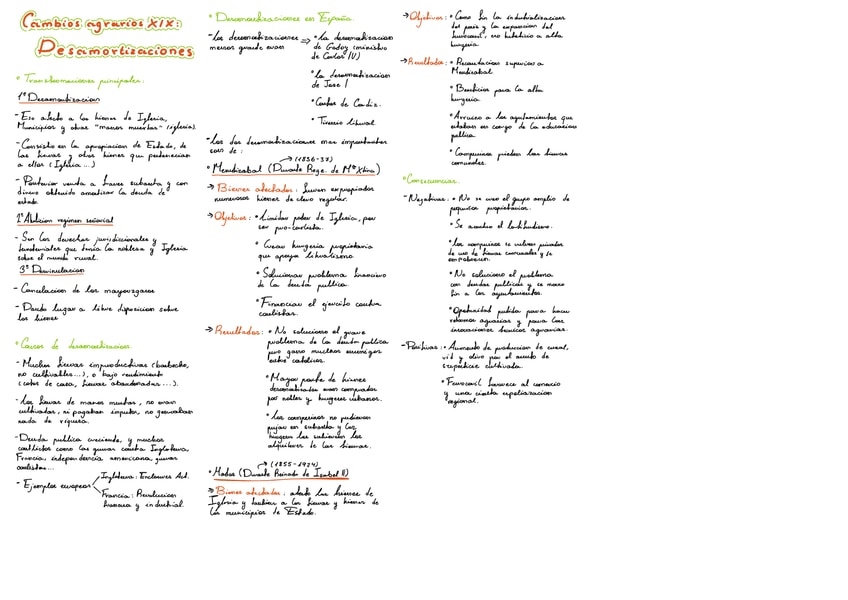 Cambios agrarios XIX:
Desamortizaciones
* Transformaciones principales:
1º Desamortizacion
- Eso afecto a los bienes de Iglesia,
Municipios y otras "manos muertas" (iglesia).
- Consistio en la apropiacion de Estado, de
las tierras y otros bienes que pertenecian
a ellos (Iglesia...)
- Posterior venta a traves subasta y con
dinero obtenido amortizar la deuda de
estado.
2º Abolicion regimen señorial
- Son los derechos jurisdiccionales y
territoriales que tenia la nobleza y Iglesia
sobre el mundo rural.
3º Desvinculacion
- Cancelacion de los mayorazgos
- Dando lugar a libre disposicion sobre
los bienes
* Causas de desamortizacion.
- Muchas tierras improductivas (barbecho,
no cultivables...), o bajo rendimiento
(cotos de caza, tierras abandonadas...).
- Las tierras de manos muertas, no eran
cultivadas, ni pagaban impuestos, no generaban
nada de riqueza.
- Deuda publica creciendo, y muchos
conflictos como las guerras contra Inglaterra,
Francia, independencia americana, guerras
carlistas...
- Ejemplos europeos
Inglaterra: Enclosures Act.
Francia: Revolucion
francesa y industrial.
* Desamortizaciones en España
- Las desamortizaciones
menos grandes eran
⇒ * la desamortizacion
de Godoy (ministro
de Carlos IV)
* la desamortizacion
de Jose I
* Cortes de Cadiz.
* Trienio liberal.
- Las dos desamortizaciones mas importantes
son de:
(1836-37)
* Mendizabal (Durante Rege. de Mª Xtina)
→ Bienes afectados: fueron expropiados
numerosos bienes de clero regular.
→ Objetivos: * Limitar poder de Iglesia, por
ser pro-carlista.
* Crear burguesia propietaria
que apoya liberalismo
* Solucionar problema financiero
de la deuda publica
* Financiar el ejercito contra
carlistas.
→ Resultados: * No soluciono el grave
problema de la deuda publica
pero gano muchos enemigos
entre catolicos.
* Mayor parte de bienes
desamortizados eran comprados
por nobles y burgueses urbanos.
* Los campesinos no pudieron
pujar en subasta y los
burgueses les subieron los
alquileres de las tierras.
(1855-1924)
* Madoz (Durante Reinado de Isabel II)
→ Bienes afectados: afecto los bienes de
Iglesia y tambien a las tierras y bienes de
los municipios de Estado.
→ Objetivos: * Como fin la industrializacion
del pais y la expansion del
ferrocarril, eso beneficio a alta
burguesia.
→ Resultados: * Recaudacion superior a
Mendizabal
* Beneficios para la alta
burguesia.
* Arruino a los ayuntamientos que
estaban en cargo de la educacion
publica
* Campesinos pierden las tierras
comunales.
* Consecuencias.
- Negativas: * No se creo el grupo amplio de
pequeños propietarios.
* Se acentuo el latifundismo.
* Los campesinos se vuelven privados
de uso de tierras comunales y se
* No soluciono el problema
con deudas publicas y se
fin a los ayuntamientos.
* Oportunidad perdida para hacer
reformas agrarias y para crear
innovaciones tecnicas agrarias.
- Positivas: * Aumento de produccion de cereal,
vid y olivo por el aumento de
superficies cultivada.
* Ferrocarril favorece al comercio
y una cierta especializacion
regional.